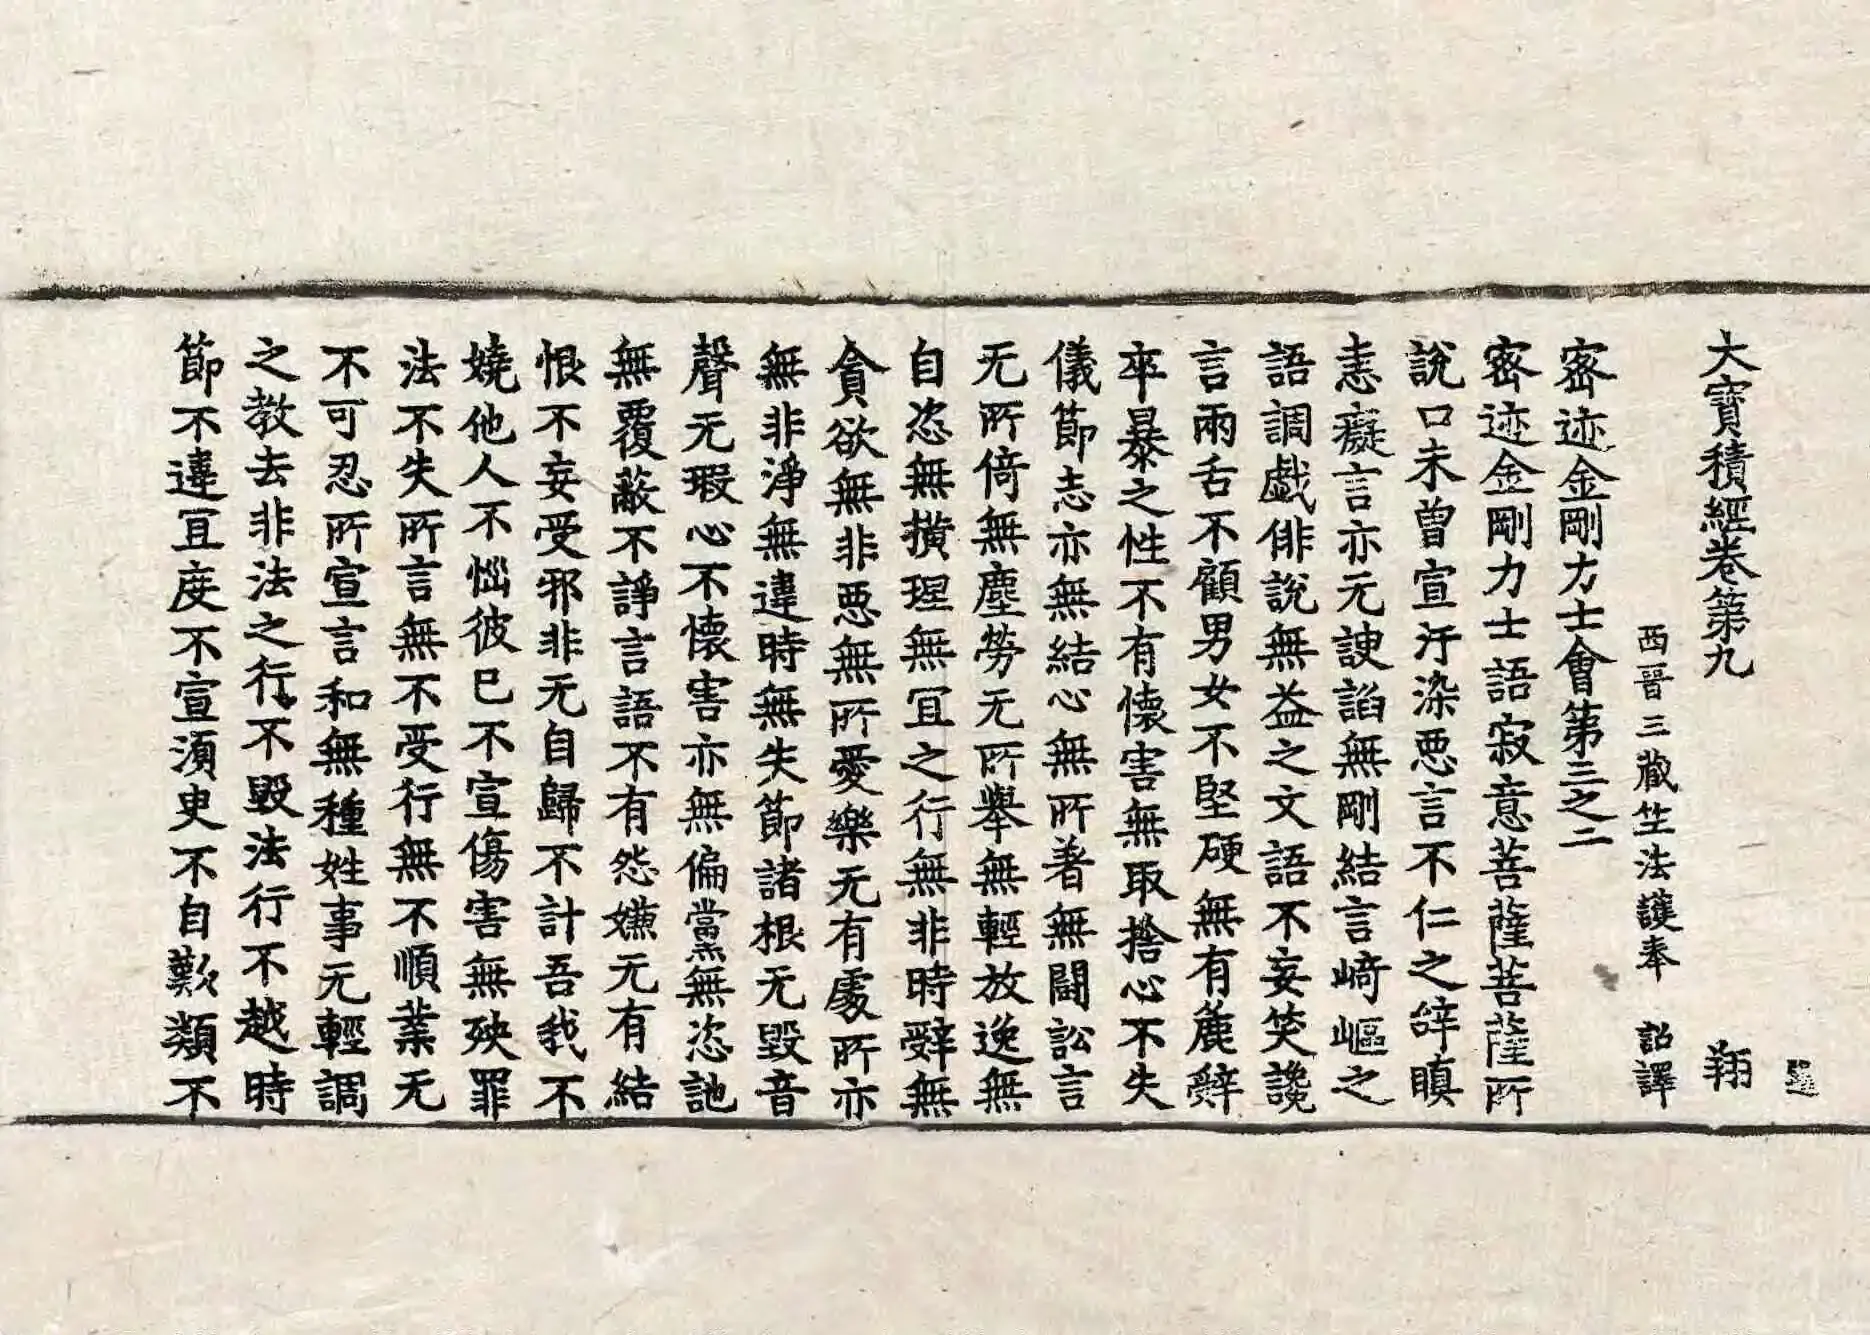 大寶積經卷第九 翔
西晉三藏竺法護奉 詔譯
密迹金剛力士會第三之二
密迹金剛力士語寂意菩薩菩薩所
說口未曾宣汙染惡言不仁之辝瞋
恚癡言亦无諛諂無剛結言﨑嶇之
語調戲俳說無益之文語不妄笑讒
言兩舌不顧男女不堅硬無有麁辤
卒暴之性不有懷害無取捨心不失
儀節志亦無結心無所著無鬪訟言
无所倚無塵勞无所舉無輕放逸無
自恣無撗理無冝之行無非時辤無
貪欲無非惡無所愛樂无有處所亦
無非淨無違時無失節諸根无毀音
聲无瑕心不懷害亦無偏黨無恣訑
無覆蔽不諍言語不有怨嫌无有結
恨不妄受邪非无自歸不計吾我不
嬈他人不惱彼已不宣傷害無殃罪
法不失所言無不受行無不順業无
不可忍所宣言和無種姓事无輕調
之教去非法之行不毀法行不越時
節不違冝度不宣湏史不自歎類不